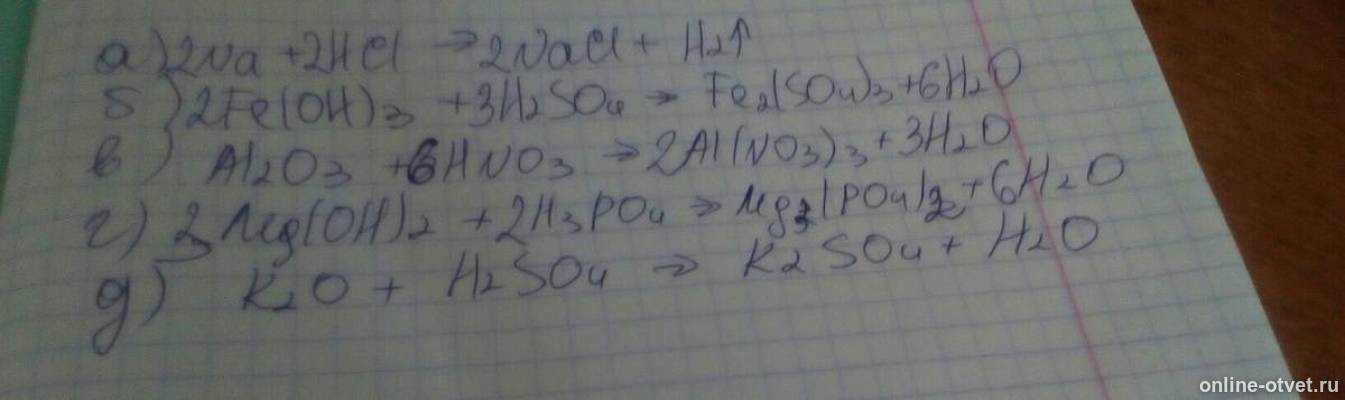 а) 2Na + 2HCl → 2NaCl + H2↑
б) 2Fe(OH)3 + 3H2SO4 → Fe2(SO4)3 + 6H2O
в) Al2O3 + 6HNO3 → 2Al(NO3)3 + 3H2O
г) 3Mg(OH)2 + 2H3PO4 → Mg3(PO4)2 + 6H2O
д) K2O + H2SO4 → K2SO4 + H2O
online-otvet.ru